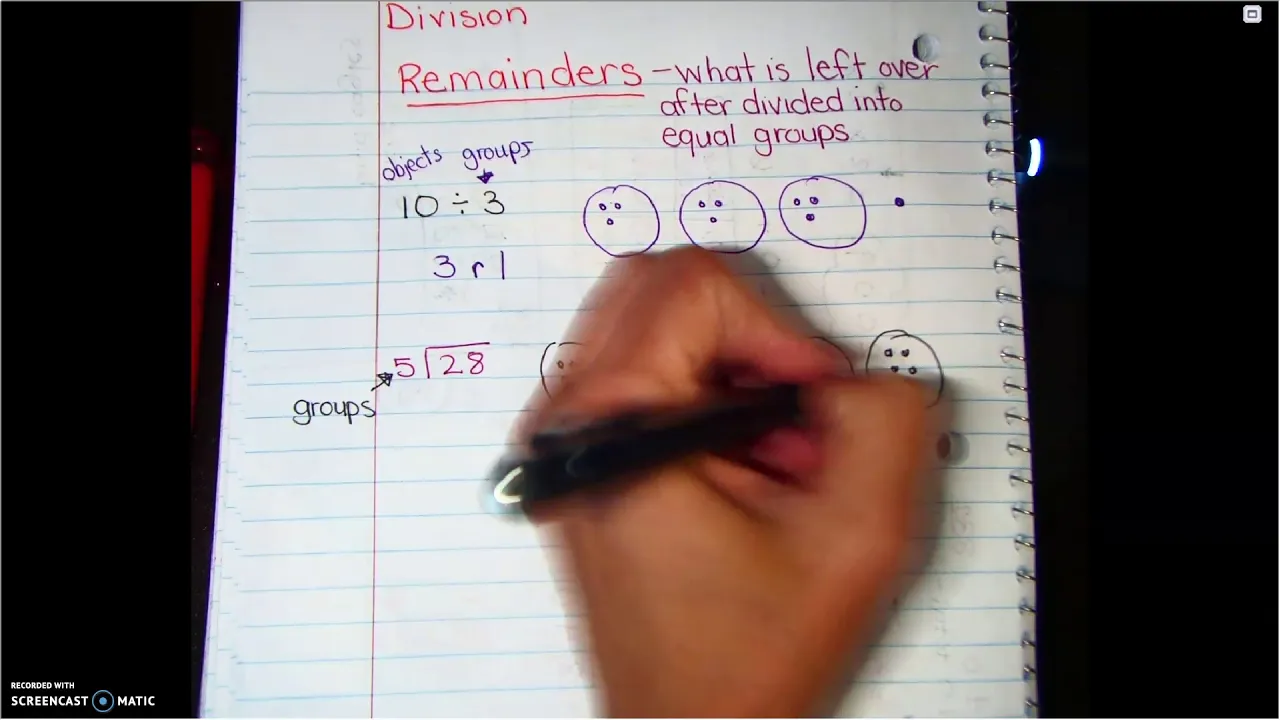 Division
Remainders - what is left over
after divided into
equal groups
objects groups
10 ÷ 3
3 r 1
5 28
groups
RECORDED WITH
SCREENCAST MATIC